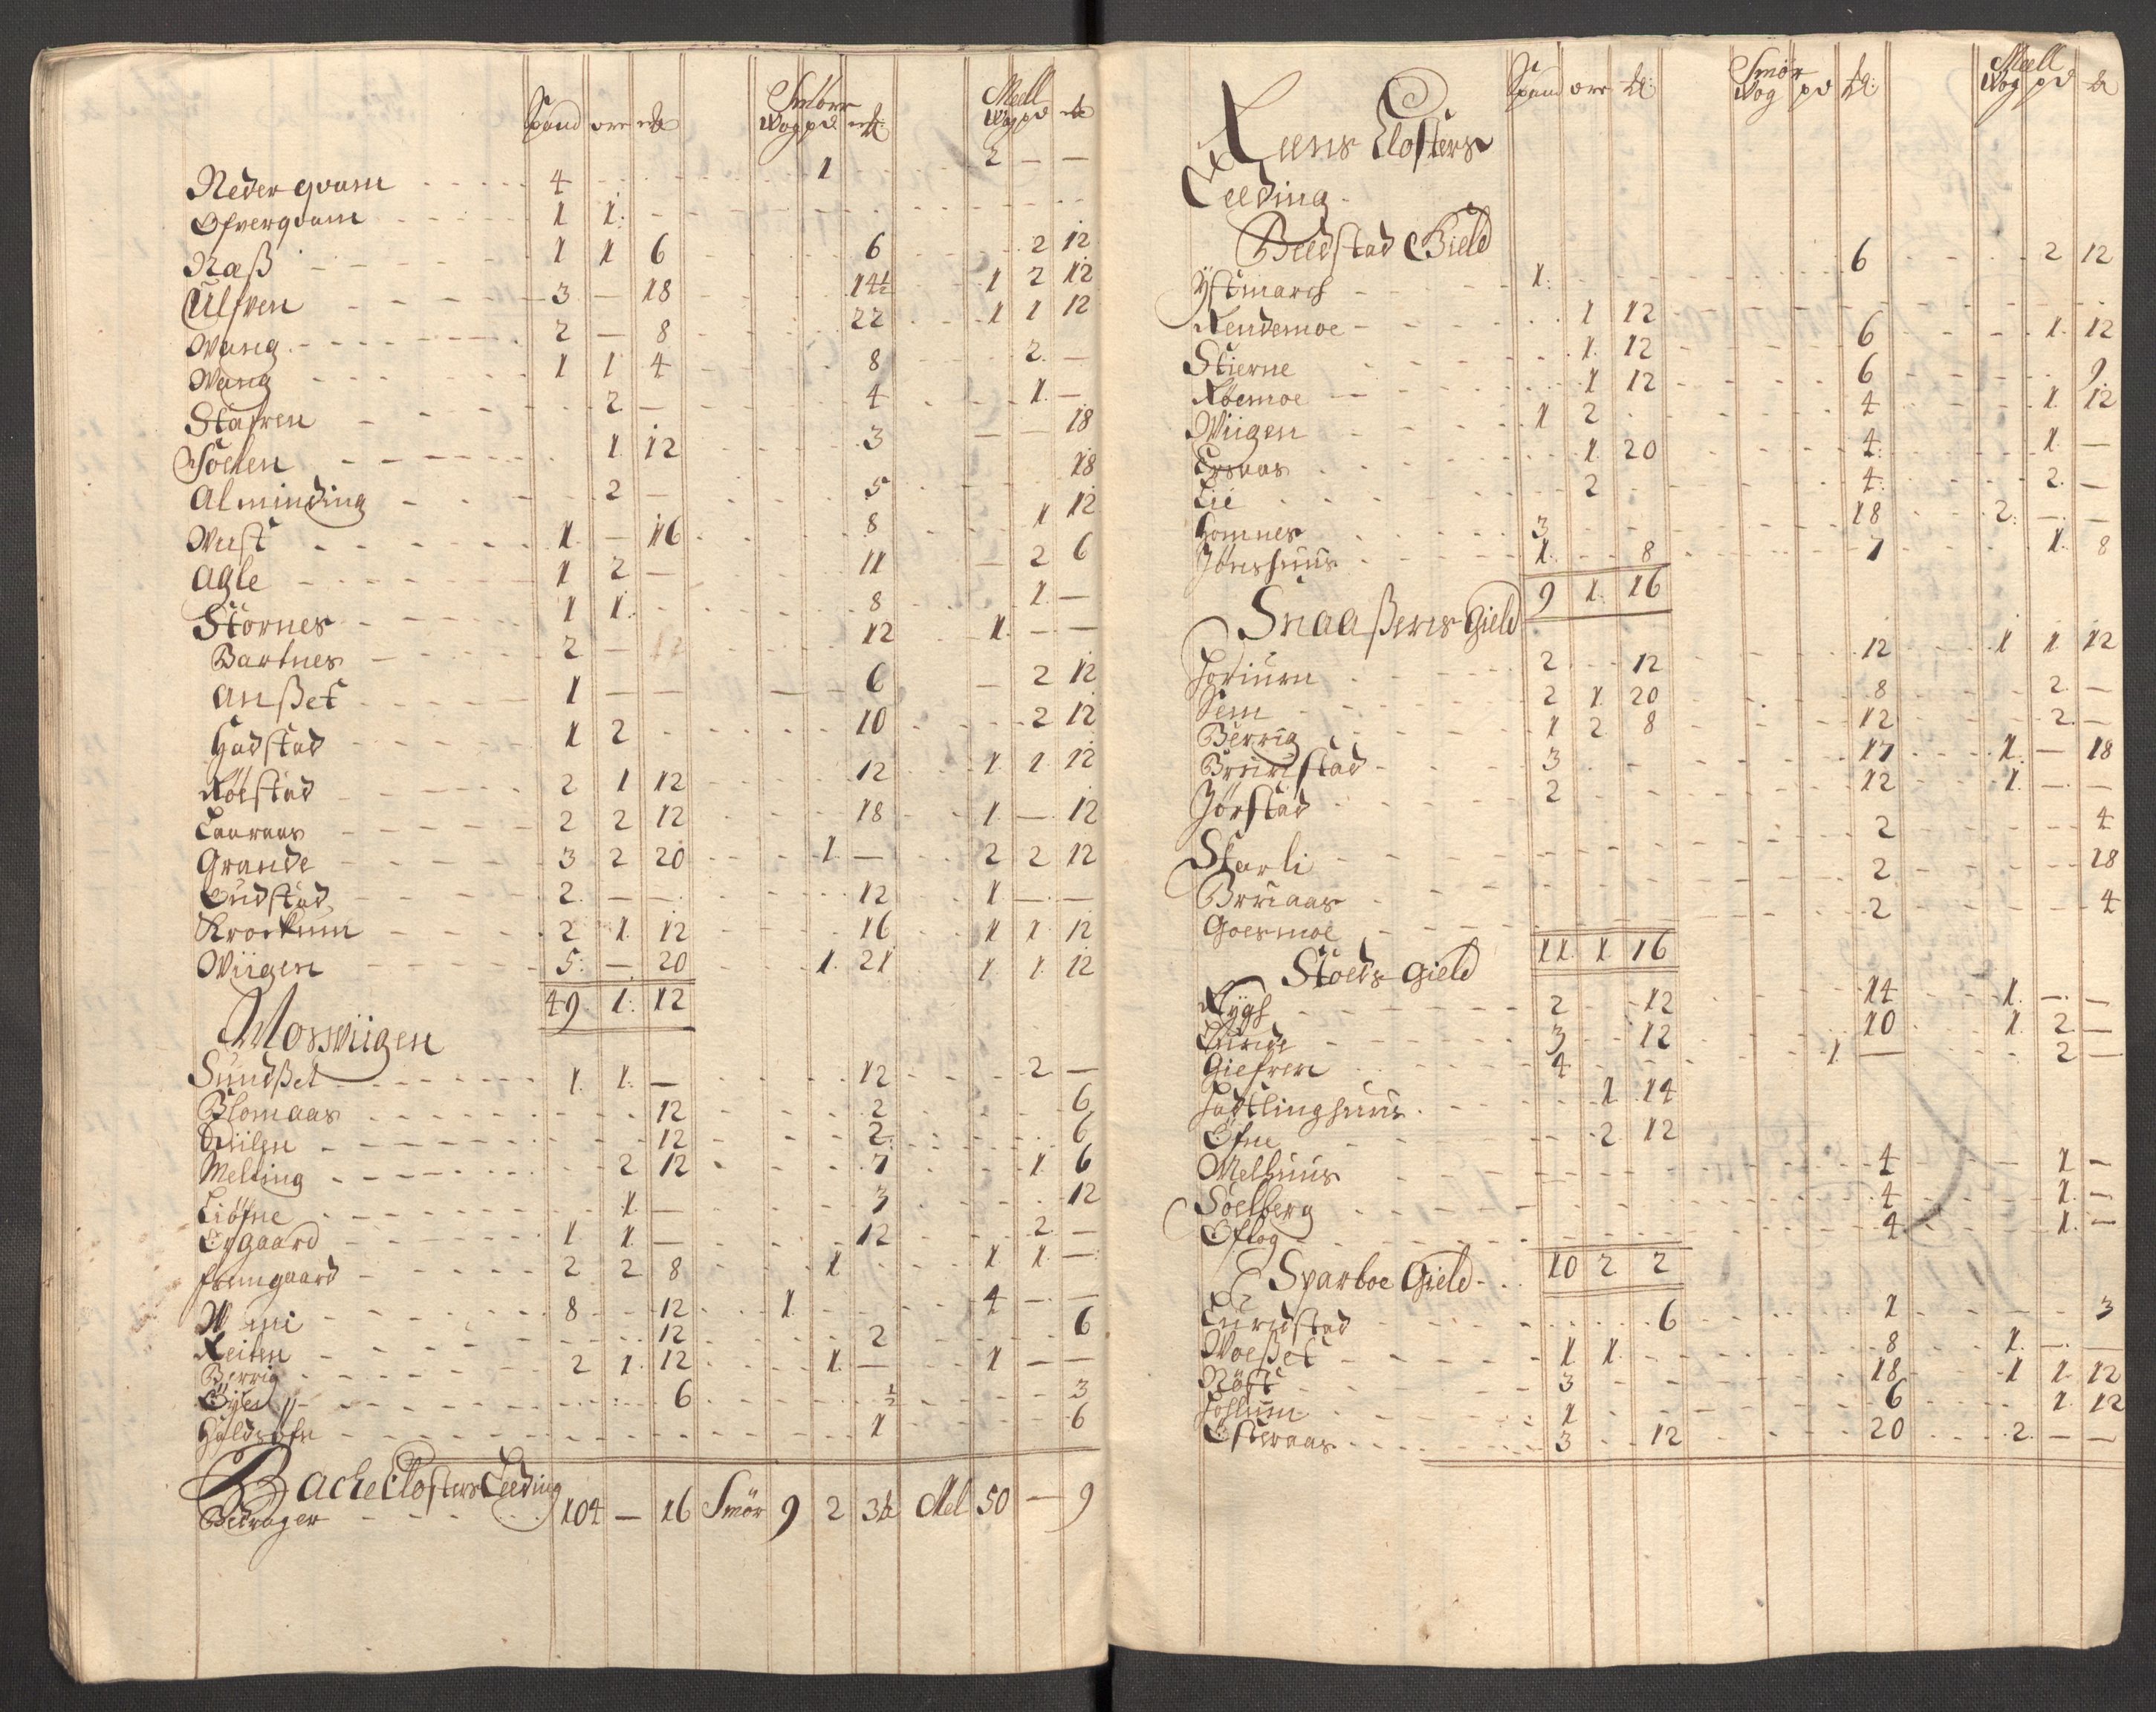 Spand ore
Smörr
Wog pd
Meell
Wog pd
Neder qvam 4 1 2 — —
Ofverqvam 1 1
Naß 1 1 6 6 2 12
Ulfven 3 — 18 14½ 1 2 12
Wang 2 — 8 22 1 1 12
Wang 1 1 4 8 2 —
Stafren 2 — 4 1 —
Soelen 1 12 3 — — 18
Alminding 2 — 5 18
Wust 1 — 16 8 1 12
Agle 1 2 — 11 — 2 6
Störnes 1 1 8 1 —
Bartnes 2 — 12 12 1 — —
Anßet 1 — — — 6 — 2 12
Hadstad 1 2 10 2 12
Röestad 2 1 12 12 1 1 12
Lauraas 2 2 12 18 1 — 12
Grande 3 2 20 1 — 2 2 12
Gudstad 2 — — 12 1 — —
Krockum 2 1 12 16 1 1 12
Wiigen 5 — 20 1 21 1 1 12
49 1 12
Mosswiigen
Sundßet 1 1 — 12 2 —
Blomaas 12 2 6
Qviilen 12 2 6
Melting 2 12 7 1 6
Liöfne 1 — 3 12
Eygaard 1 1 — 12 2 —
fremgaard 2 2 8 1 1 1 —
Wini 8 12 1 4 — —
Reiten 12 2 6
Berrig 2 1 12 1 — 1 — —
Öyen 6 ½ 3
Haldsofn 1 6
Bache Closters Leeding
Bedrager 104 — 16 Smör 9 2 3½ Mel 50 — 9
Spand ore
Smör
Wog pd
Meell
Wog pd
Reens Closters
Leeding
Beedstad Gield
Ÿstmarch 1 6 2 12
Rendemoe 1 12
Stierne 1 12 6 1 12
Röemoe 1 12 6 9
Wiigen 1 2 4 1 12
Ersaas 1 20 4 1 —
Lie 2 4 2 —
Homnes 3 18 2 — —
Jönshuus 1 8 7 1 8
9 1 16
Snaaßens Gield
Horium 2 12 12 1 1 12
Sem 2 1 20 8 2 —
Berrig 1 2 8 12 2 —
Bruustad 3 17 1 — 18
Jörstad 2 12 1 — —
Starli 2 4
Bruaas 2 18
Goesmoe 2 4
11 1 16
Stoeds Gield
Rygh 2 12 14 1 — —
Lunde 3 12 10 1 2 —
Giefren 4 1 — 2 —
Hadtlinghuus 1 14
Ofne 2 12
Melhuus 4 1 —
Soelberg 4 1 —
Oflog 4 1 —
10 2 2
Sparboe Gield
Lundstad 6 1 3
Woeßet 1 1 8 1 — —
Nöst 3 18 1 1 12
Hollum 1 6 1 12
Österaas 3 12 20 2 — —